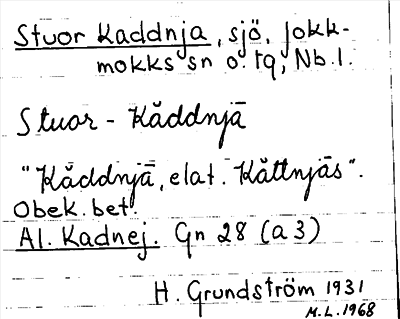 Stuor Kaddnja, sjö, Jokk-
mokks sn o. tg, Nb.l.
Stuor - Kăddnjā
"Kăddnjā, elat. Kăttnjās".
Obek. bet.
Al. Kadnej. Gn 28 (a3)
H. Grundström 1931
M.L. 1968